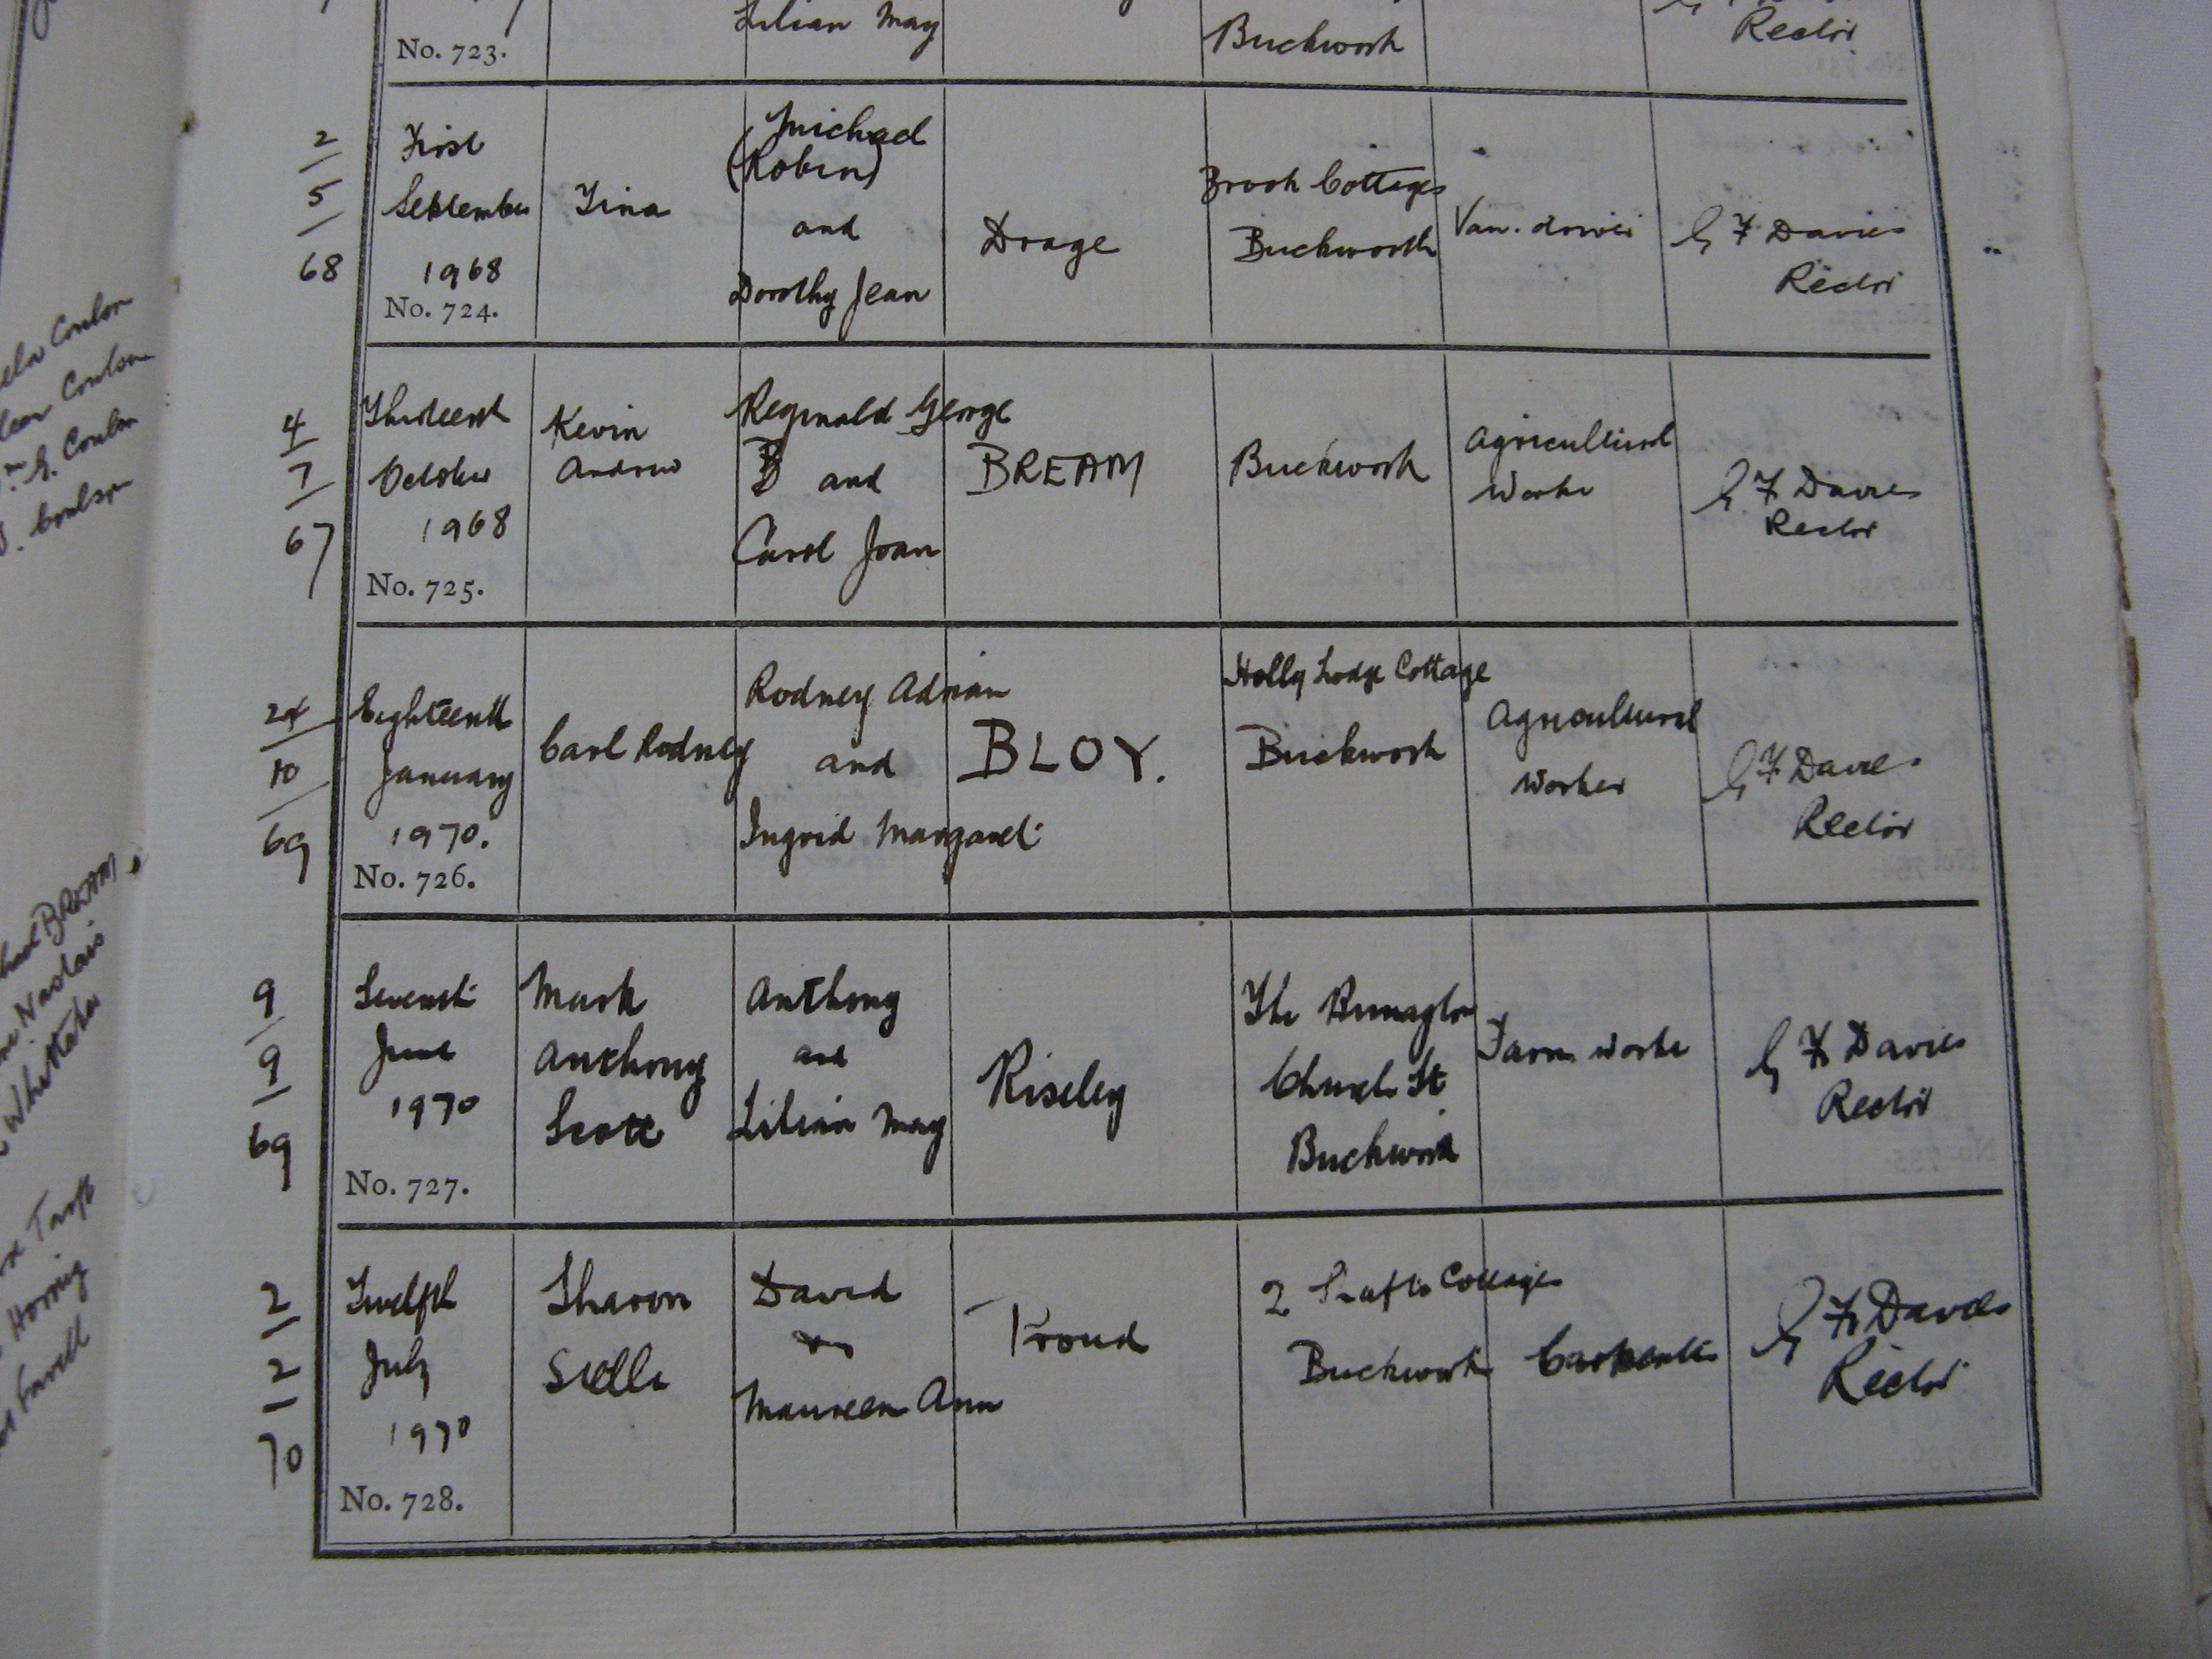 Lilian May
Buckworth
Rector
No. 723.
2
5
68
First
September
1968
No. 724.
Tina
Michael
(Robin)
and
Dorothy Jean
Drage
Brook Cottages
Buckworth
Van. driver
G F Davies
Rector
4
7
67
Thirteenth
October
1968
No. 725.
Kevin
Andrew
Reginald George
B and
Carol Joan
BREAM
Buckworth
Agricultural
Worker
G F Davies
Rector
24
10
69
Eighteenth
January
1970.
No. 726.
Carl Rodney
Rodney Adrian
and
Ingrid Margaret
BLOY.
Holly Lodge Cottage
Buckworth
Agricultural
Worker
G F Davies
Rector
9
9
69
Seventh
June
1970
No. 727.
Mark
Anthony
Scott
Anthony
and
Lilian May
Riseley
The Bungalow
Church St
Buckworth
Farm worker
G F Davies
Rector
2
2
70
Twelfth
July
1970
No. 728.
Sharon
Stella
David
Maureen Ann
Proud
2 Cottages
Buckworth
Carpenter
G F Davies
Rector
Coulson
Coulson
E. Coulson
Coulson
BREAM
Whittaker